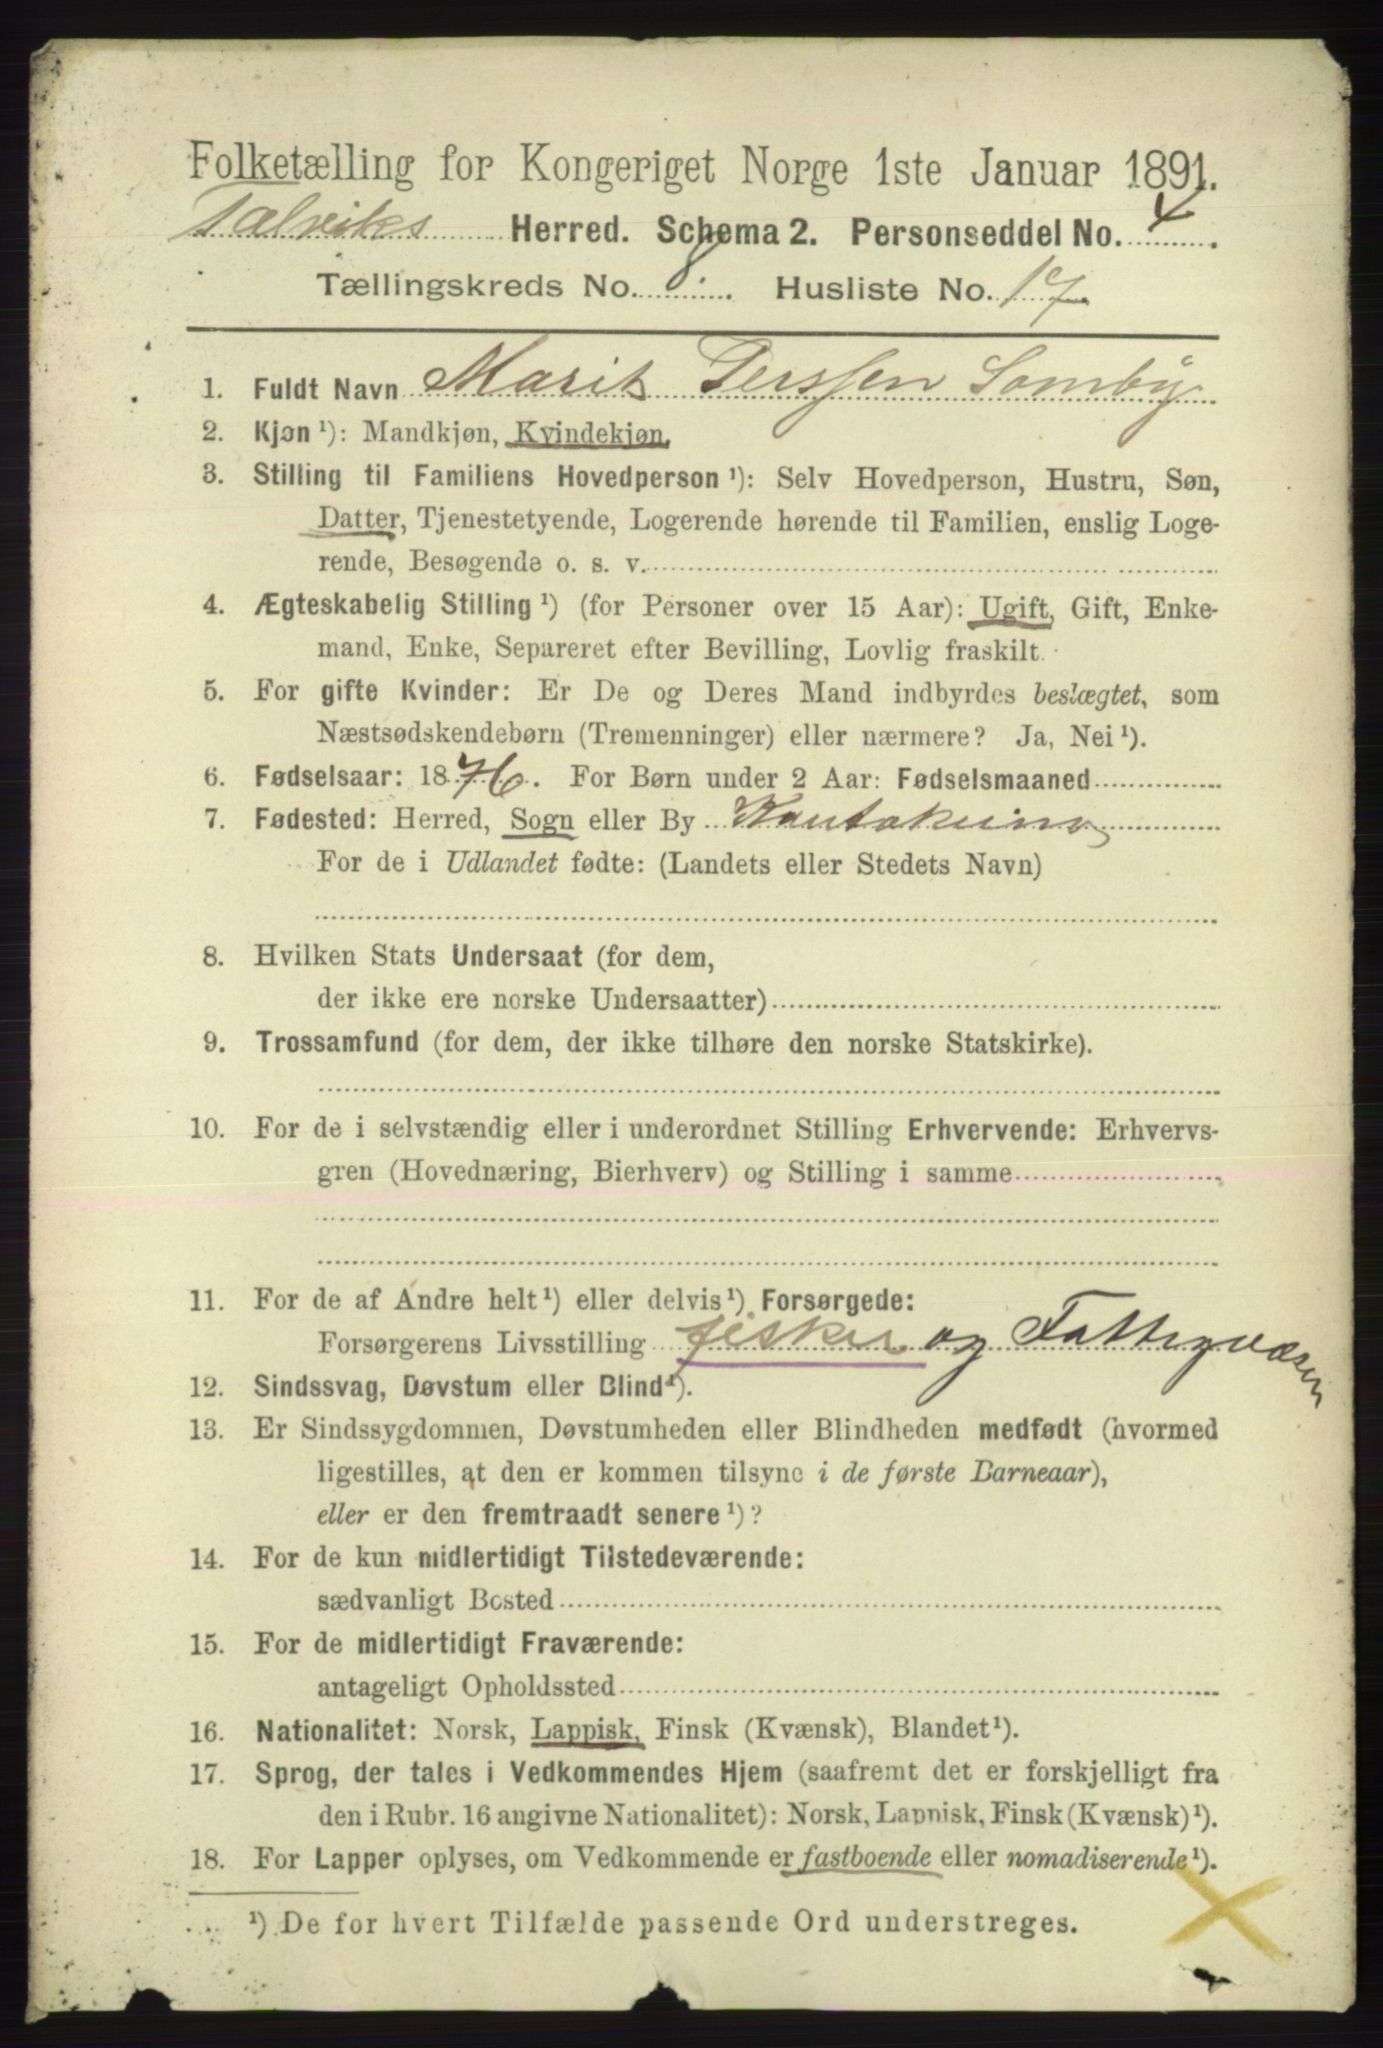 Folketælling for Kongeriget Norge 1ste Januar 1891.
Talviks Herred. Schema 2. Personseddel No. 4.
Tællingskreds No. 8. Husliste No. 17
1. Fuldt Navn Marit Perssen Somby
2. Kjøn ¹): Mandkjøn, Kvindekjøn.
3. Stilling til Familiens Hovedperson ¹): Selv Hovedperson, Hustru, Søn,
Datter, Tjenestetyende, Logerende hørende til Familien, enslig Loge-
rende, Besøgende o. s. v.
4. Ægteskabelig Stilling ¹) (for Personer over 15 Aar): Ugift, Gift, Enke-
mand, Enke, Separeret efter Bevilling, Lovlig fraskilt.
5. For gifte Kvinder: Er De og Deres Mand indbyrdes beslægtet, som
Næstsødskendebørn (Tremenninger) eller nærmere? Ja, Nei ¹).
6. Fødselsaar: 1876. For Børn under 2 Aar: Fødselsmaaned
7. Fødested: Herred, Sogn eller By Kautokeino
For de i Udlandet fødte: (Landets eller Stedets Navn)
8. Hvilken Stats Undersaat (for dem,
der ikke ere norske Undersaatter)
9. Trossamfund (for dem, der ikke tilhøre den norske Statskirke).
10. For de i selvstændig eller i underordnet Stilling Erhvervende: Erhvervs-
gren (Hovednæring, Bierhverv) og Stilling i samme
11. For de af Andre helt ¹) eller delvis ¹) Forsørgede:
Forsørgerens Livsstilling fisker og Fattigvæsen
12. Sindssvag, Døvstum eller Blind ¹).
13. Er Sindssygdommen, Døvstumheden eller Blindheden medfødt (hvormed
ligestilles, at den er kommen tilsyne i de første Barneaar),
eller er den fremtraadt senere ¹)?
14. For de kun midlertidigt Tilstedeværende:
sædvanligt Bosted
15. For de midlertidigt Fraværende:
antageligt Opholdssted
16. Nationalitet: Norsk, Lappisk, Finsk (Kvænsk), Blandet ¹).
17. Sprog, der tales i Vedkommendes Hjem (saafremt det er forskjelligt fra
den i Rubr. 16 angivne Nationalitet): Norsk, Lappisk, Finsk (Kvænsk) ¹).
18. For Lapper oplyses, om Vedkommende er fastboende eller nomadiserende ¹).
¹) De for hvert Tilfælde passende Ord understreges.